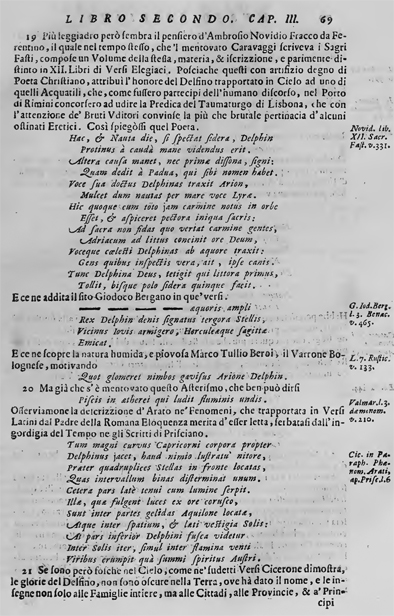 LIBRO SECONDO. CAP. III. 69
19 Più leggiadro però sembra il pensiero d'Ambrosio Novidio Fracco da Fe-
rentino, il quale nel tempo stesso, che 'l mentovato Caravaggi scriveva i Sagri
Fasti, compose un Volume della stessa, materia, & iscrizione, e parimente di-
stinto in XII. Libri di Versi Elegiaci. Posciache questi con artifizio degno di
Poeta Christiano, attribuì l'honore del Delfino trapportato in Cielo ad uno di
quelli Acquatili, che, come fussero partecipi dell'humano discorso, nel Porto
di Rimini concorsero ad udire la Predica del Taumaturgo di Lisbona, che con
l'attenzione de' Bruti Vditori convinse la più che brutale pertinacia d'alcuni
ostinati Eretici. Così spiegossi quel Poeta.
Novid. lib.
XII. Sacr.
Fast. v.331.
Hac, & Nauta die, si spectat sidera, Delphin
Protinus à caudâ mane videndus erit.
Altera causa manet, nec prima dissona, signi:
Quam dedit à Padua, qui sibi nomen habet.
Voce sua doctus Delphinas traxit Arion,
Mulcet dum nautas per mare voce Lyra.
Hic quoque cum toto jam carmine notus in orbe
Esset, & aspiceret pectora iniqua sacris:
Ad sacra non fidas quo vertat carmine gentes,
Adriacum ad littus concinit ore Deum,
Voceque cælesti Delphinas ab aquore traxit:
Gens quibus inspectis vera, ait, ipse canis.
Tunc Delphina Deus, tetigit qui littora primus,
Tollit, bisque polo sidera quinque facit.
E ce ne addita il sito Giodoco Bergano in que' versi.
G. Iod. Berg.
l. 3. Benac.
v. 465.
aquoris ampli
Rex Delphin denis signatus tergora Stellis,
Vicinus Iovis armigero, Herculeaque sagitta
Emicat.
E ce ne scopre la natura humida, e piovosa Marco Tullio Beroi, il Varrone Bo-
lognese, motivando
L. 7. Rustic.
v. 133.
Quos glomeret nimbos gavisus Arione Delphin.
20 Ma già che s'è mentovato questo Asterismo, che ben può dirsi
Piscis in atherei qui ludit fluminis undis.
Osserviamone la descrizzione d'Arato ne' Fenomeni, che trapportata in Versi
Latini dal Padre della Romana Eloquenza merita d'esser letta, serbatasi dall'in-
gordigia del Tempo ne gli Scritti di Prisciano.
Valmar. l.3.
v. 210.
Tum magui curvus Capricorni corpora propter
Delphinus jacet, haud nimio lustratu' nitore,
Præter quadruplices Stellas in fronte locatas,
Quas intervallum binas disterminat unum.
Cetera pars latè tenui cum lumine serpit.
Illa, qua fulgent luces ex ore corusco,
Sunt inter partes gelidas Aquilone locata,
Atque inter spatium, & lati vestigia Solis:
At pars inferior Delphini fusca videtur
Inter Solis iter, simul inter flamina venti
Viribus erumpit quà summi spiritus Austri.
Cic. in Pa-
raph. Phæ-
nom. Arati,
ap. Prisc. l.6
21 Se sono però fosche nel Cielo, come ne' sudetti Versi Cicerone dimostra,
le glorie del Delfino, non sono oscure nella Terra, ove hà dato il nome, e le in-
segne non solo alle Famiglie intiere, ma alle Cittadi, alle Provincie, & a' Prin-
cipi